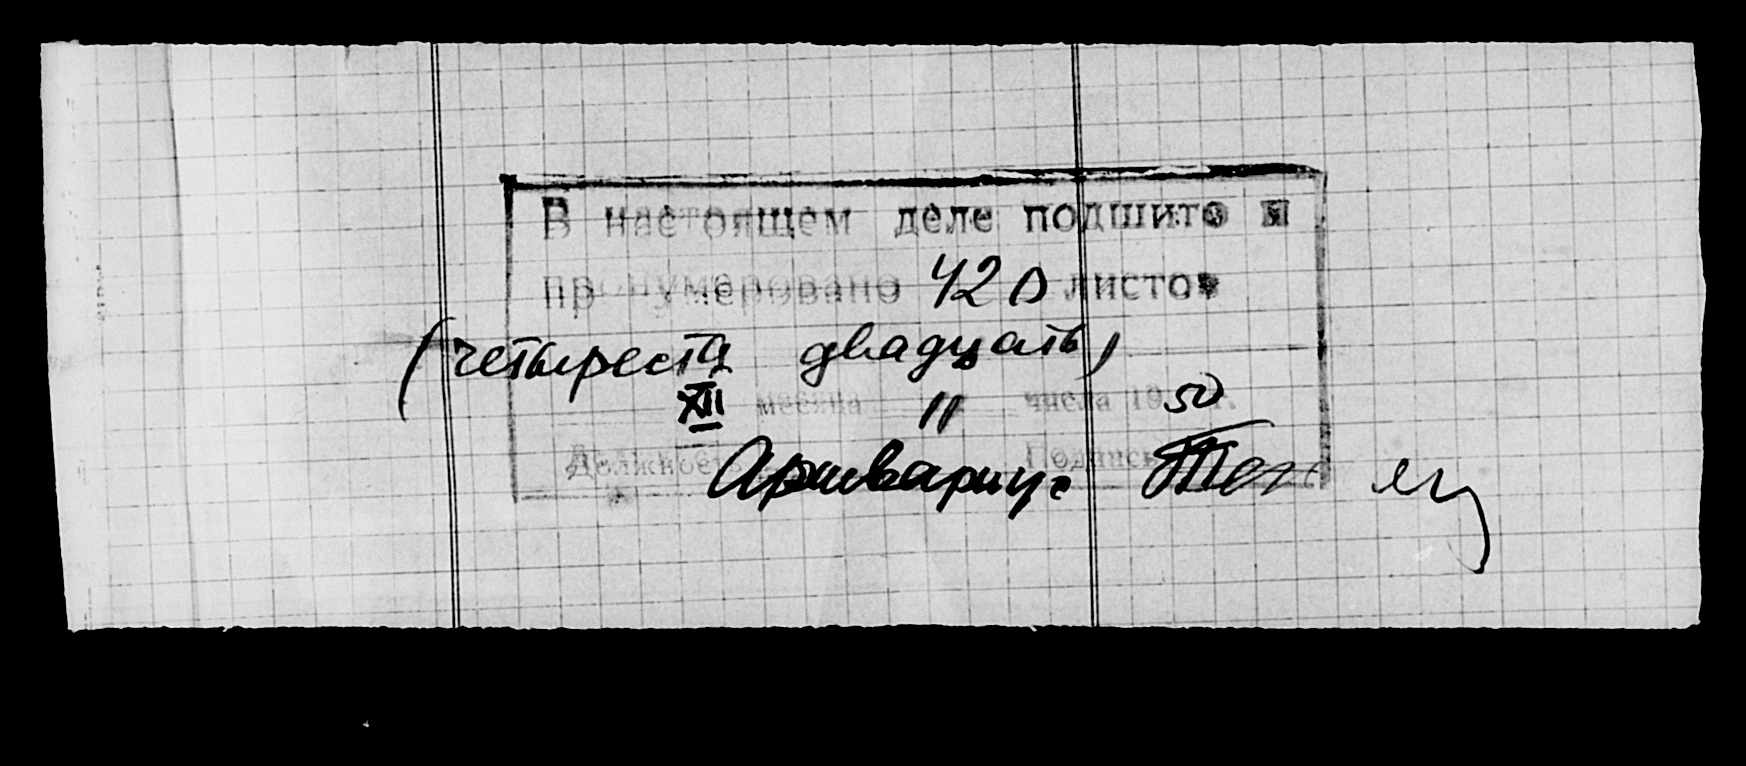 В настоящем деле подшито и
пронумеровано 420 листов
(четыреста двадцать)
XII месяца 11 числа 1950 г.
Должность Архивариус Подпись